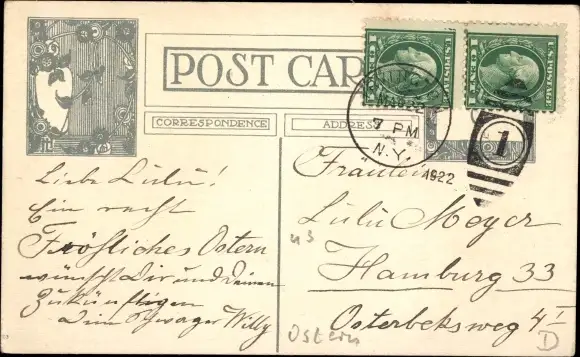 POST CAR
CORRESPONDENCE
ADDRESS
U.S. POSTAGE
1 CENT 1
U.S. POSTAGE
1 CENT 1
7 PM
N.Y.
1922
1
Liebe Lulu!
Ein recht
Fröhliches Ostern
wünscht Dir und Deinem
Zukünftigen
Dein Schwager Willy
Fräulein
Lulu Meyer
Hamburg 33
Osterbeksweg 4 I
Ostern
D